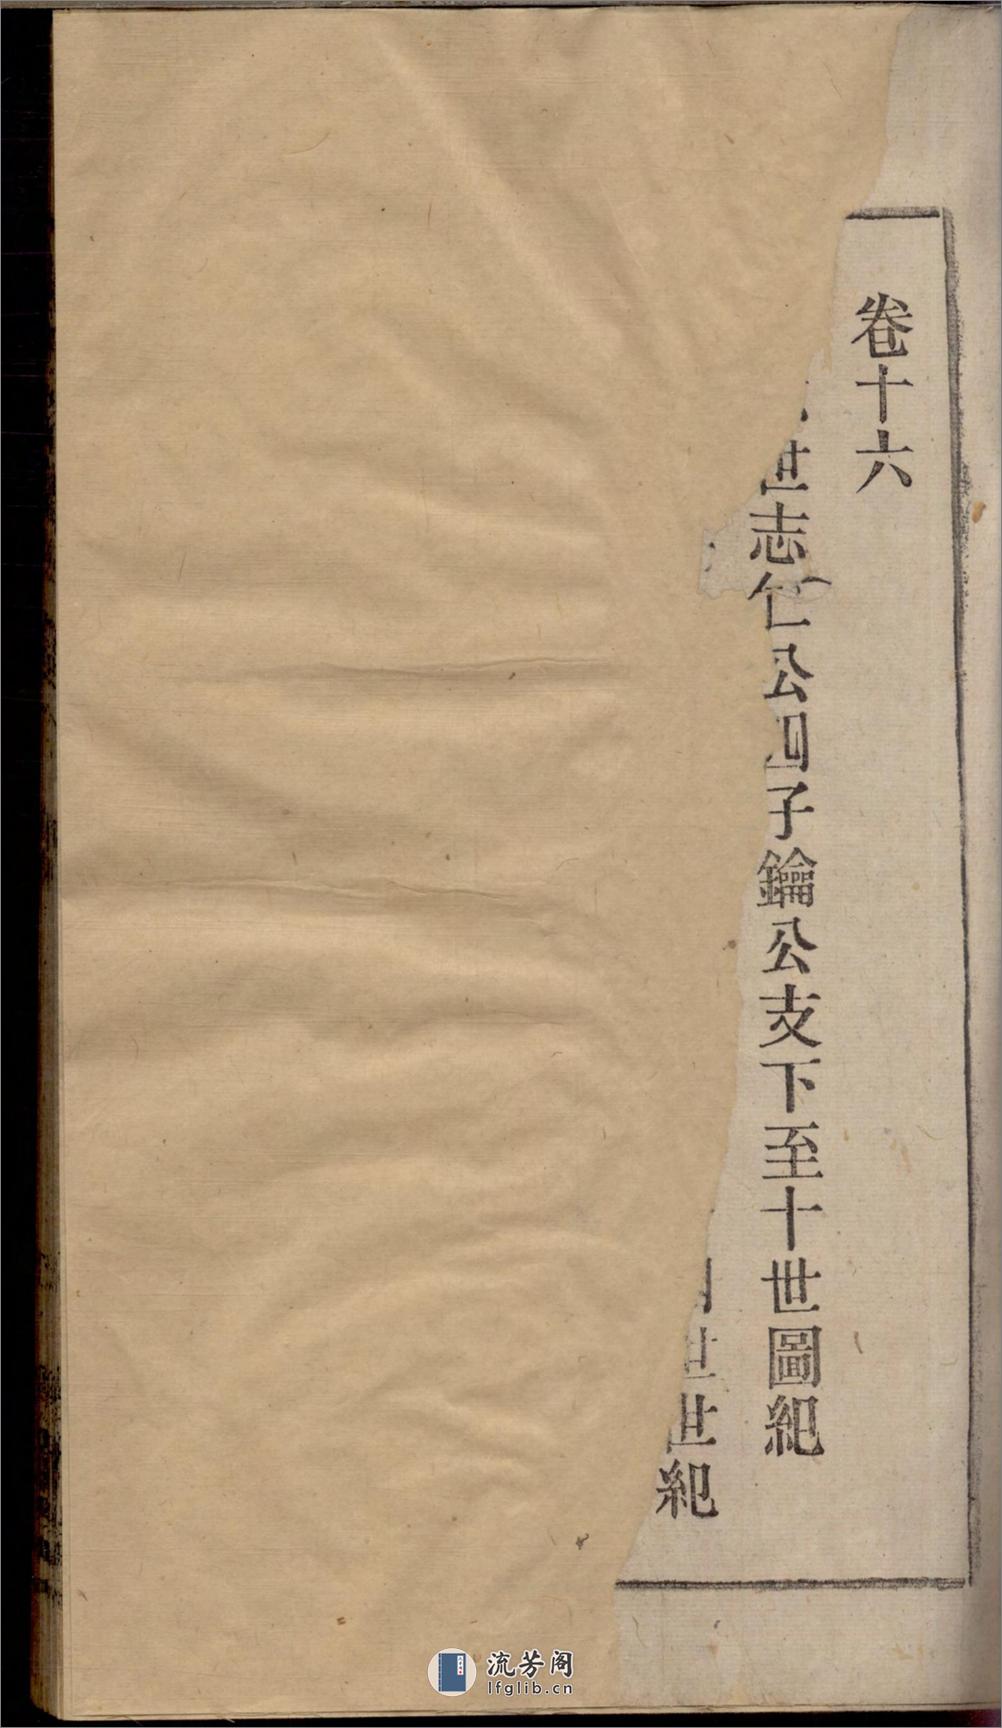 卷十六
世志仁公四子鑰公支下至十世圖紀
世世紀
流芳阁
lfglib.cn